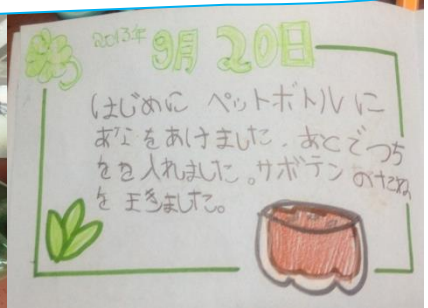 2013年 9月 20日
はじめに ペットボトルに
あなをあけました. あとでつち
をを入れました。サボテン のたね
を まきました。